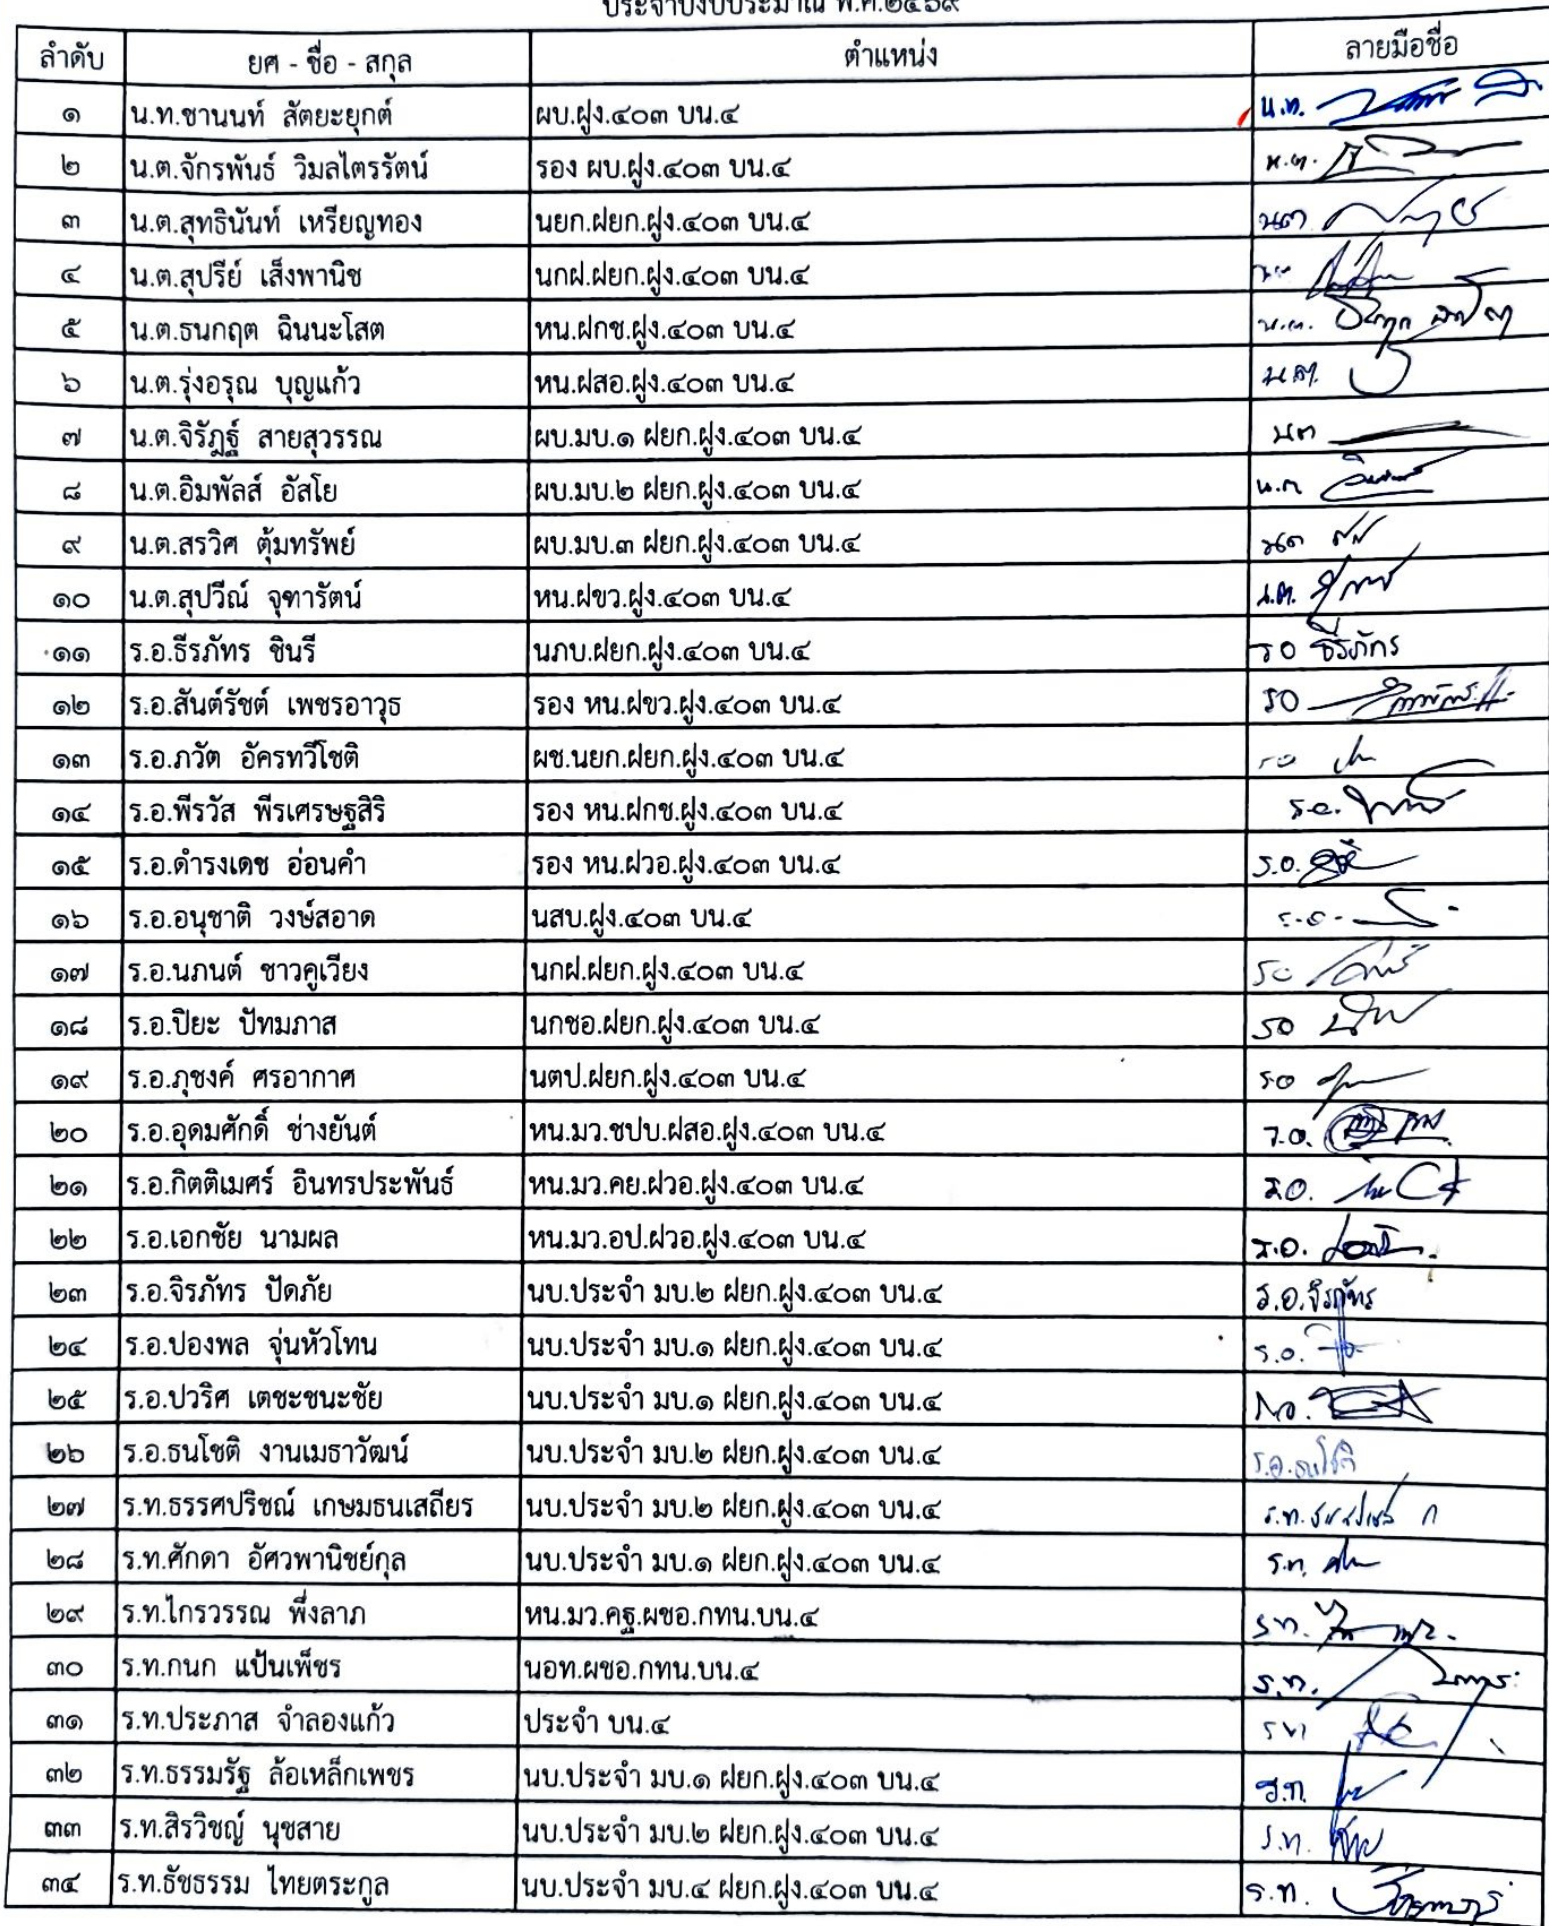 ประจำปีงบประมาณ พ.ศ.๒๕๖๙
ลำดับ ยศ - ชื่อ - สกุล ตำแหน่ง ลายมือชื่อ
๑ น.ท.ชานนท์ สัตยะยุกต์ ผบ.ฝูง.๔๐๓ บน.๔ น.ท.
๒ น.ต.จักรพันธ์ วิมลไตรรัตน์ รอง ผบ.ฝูง.๔๐๓ บน.๔ น.ต.
๓ น.ต.สุทธินันท์ เหรียญทอง นยก.ฝยก.ฝูง.๔๐๓ บน.๔ นต
๔ น.ต.สุปรีย์ เส็งพานิช นกฝ.ฝยก.ฝูง.๔๐๓ บน.๔
๕ น.ต.ธนกฤต ฉินนะโสต หน.ฝกช.ฝูง.๔๐๓ บน.๔ น.ต.
๖ น.ต.รุ่งอรุณ บุญแก้ว หน.ฝสอ.ฝูง.๔๐๓ บน.๔ น.ต.
๗ น.ต.จิรัฎฐ์ สายสุวรรณ ผบ.มบ.๑ ฝยก.ฝูง.๔๐๓ บน.๔ นต
๘ น.ต.อิมพัลส์ อัสโย ผบ.มบ.๒ ฝยก.ฝูง.๔๐๓ บน.๔ น.ต
๙ น.ต.สรวิศ ตุ้มทรัพย์ ผบ.มบ.๓ ฝยก.ฝูง.๔๐๓ บน.๔ นต
๑๐ น.ต.สุปวีณ์ จุฑารัตน์ หน.ฝขว.ฝูง.๔๐๓ บน.๔ น.ต.
๑๑ ร.อ.ธีรภัทร ชินรี นภบ.ฝยก.ฝูง.๔๐๓ บน.๔ รอ ธีรภัทร
๑๒ ร.อ.สันต์รัชต์ เพชรอาวุธ รอง หน.ฝขว.ฝูง.๔๐๓ บน.๔ รอ
๑๓ ร.อ.ภวัต อัครทวีโชติ ผช.นยก.ฝยก.ฝูง.๔๐๓ บน.๔ รอ
๑๔ ร.อ.พีรวัส พีรเศรษฐสิริ รอง หน.ฝกช.ฝูง.๔๐๓ บน.๔ ร.อ.
๑๕ ร.อ.ดำรงเดช อ่อนคำ รอง หน.ฝวอ.ฝูง.๔๐๓ บน.๔ ร.อ.
๑๖ ร.อ.อนุชาติ วงษ์สอาด นสบ.ฝูง.๔๐๓ บน.๔ ร.อ.
๑๗ ร.อ.นภนต์ ชาวคูเวียง นกฝ.ฝยก.ฝูง.๔๐๓ บน.๔ รอ
๑๘ ร.อ.ปิยะ ปัทมภาส นกชอ.ฝยก.ฝูง.๔๐๓ บน.๔ รอ
๑๙ ร.อ.ภุชงค์ ศรอากาศ นตป.ฝยก.ฝูง.๔๐๓ บน.๔ รอ
๒๐ ร.อ.อุดมศักดิ์ ช่างยันต์ หน.มว.ชปบ.ฝสอ.ฝูง.๔๐๓ บน.๔ ร.อ.
๒๑ ร.อ.กิตติเมศร์ อินทรประพันธ์ หน.มว.คย.ฝวอ.ฝูง.๔๐๓ บน.๔ รอ.
๒๒ ร.อ.เอกชัย นามผล หน.มว.อป.ฝวอ.ฝูง.๔๐๓ บน.๔ ร.อ.
๒๓ ร.อ.จิรภัทร ปัดภัย นบ.ประจำ มบ.๒ ฝยก.ฝูง.๔๐๓ บน.๔ ร.อ.จิรภัทร
๒๔ ร.อ.ปองพล จุ่นหัวโทน นบ.ประจำ มบ.๑ ฝยก.ฝูง.๔๐๓ บน.๔ ร.อ.
๒๕ ร.อ.ปวริศ เตชะชนะชัย นบ.ประจำ มบ.๑ ฝยก.ฝูง.๔๐๓ บน.๔
๒๖ ร.อ.ธนโชติ งานเมธาวัฒน์ นบ.ประจำ มบ.๒ ฝยก.ฝูง.๔๐๓ บน.๔ ร.อ.ธนโชติ
๒๗ ร.ท.ธรรศปริชญ์ เกษมธนเสถียร นบ.ประจำ มบ.๒ ฝยก.ฝูง.๔๐๓ บน.๔ ร.ท.
๒๘ ร.ท.ศักดา อัศวพานิชย์กุล นบ.ประจำ มบ.๑ ฝยก.ฝูง.๔๐๓ บน.๔ ร.ท.
๒๙ ร.ท.ไกรวรรณ พึ่งลาภ หน.มว.คฐ.ผชอ.กทน.บน.๔ ร.ท.
๓๐ ร.ท.กนก แป้นเพ็ชร นอท.ผชอ.กทน.บน.๔ ร.ท.
๓๑ ร.ท.ประภาส จำลองแก้ว ประจำ บน.๔ รท
๓๒ ร.ท.ธรรมรัฐ ล้อเหล็กเพชร นบ.ประจำ มบ.๑ ฝยก.ฝูง.๔๐๓ บน.๔ ร.ท.
๓๓ ร.ท.สิรวิชญ์ นุชสาย นบ.ประจำ มบ.๒ ฝยก.ฝูง.๔๐๓ บน.๔ ร.ท.
๓๔ ร.ท.ธัชธรรม ไทยตระกูล นบ.ประจำ มบ.๔ ฝยก.ฝูง.๔๐๓ บน.๔ ร.ท.